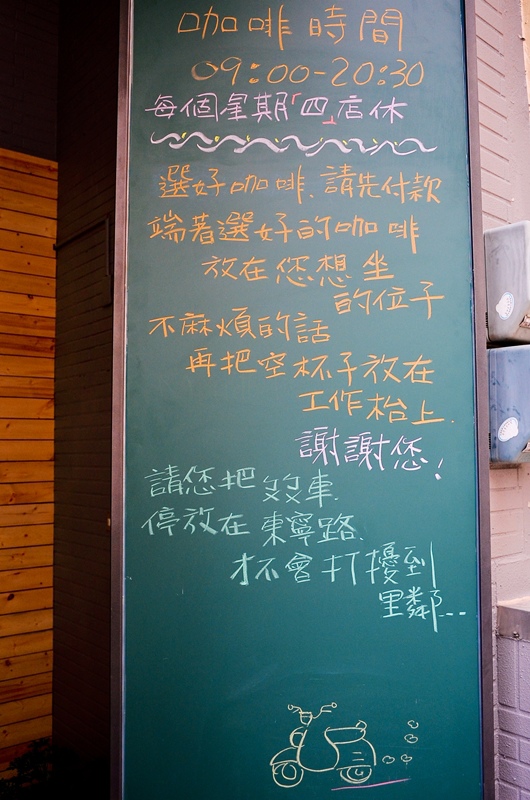 咖啡時間
09:00-20:30
每個星期「四」店休
選好咖啡、請先付款
端著選好的咖啡
放在您想坐
的位子
不麻煩的話
再把空杯子放在
工作枱上.
謝謝您!
請您把ㄉㄉ車.
停放在東寧路.
才不會打擾到
里鄰...